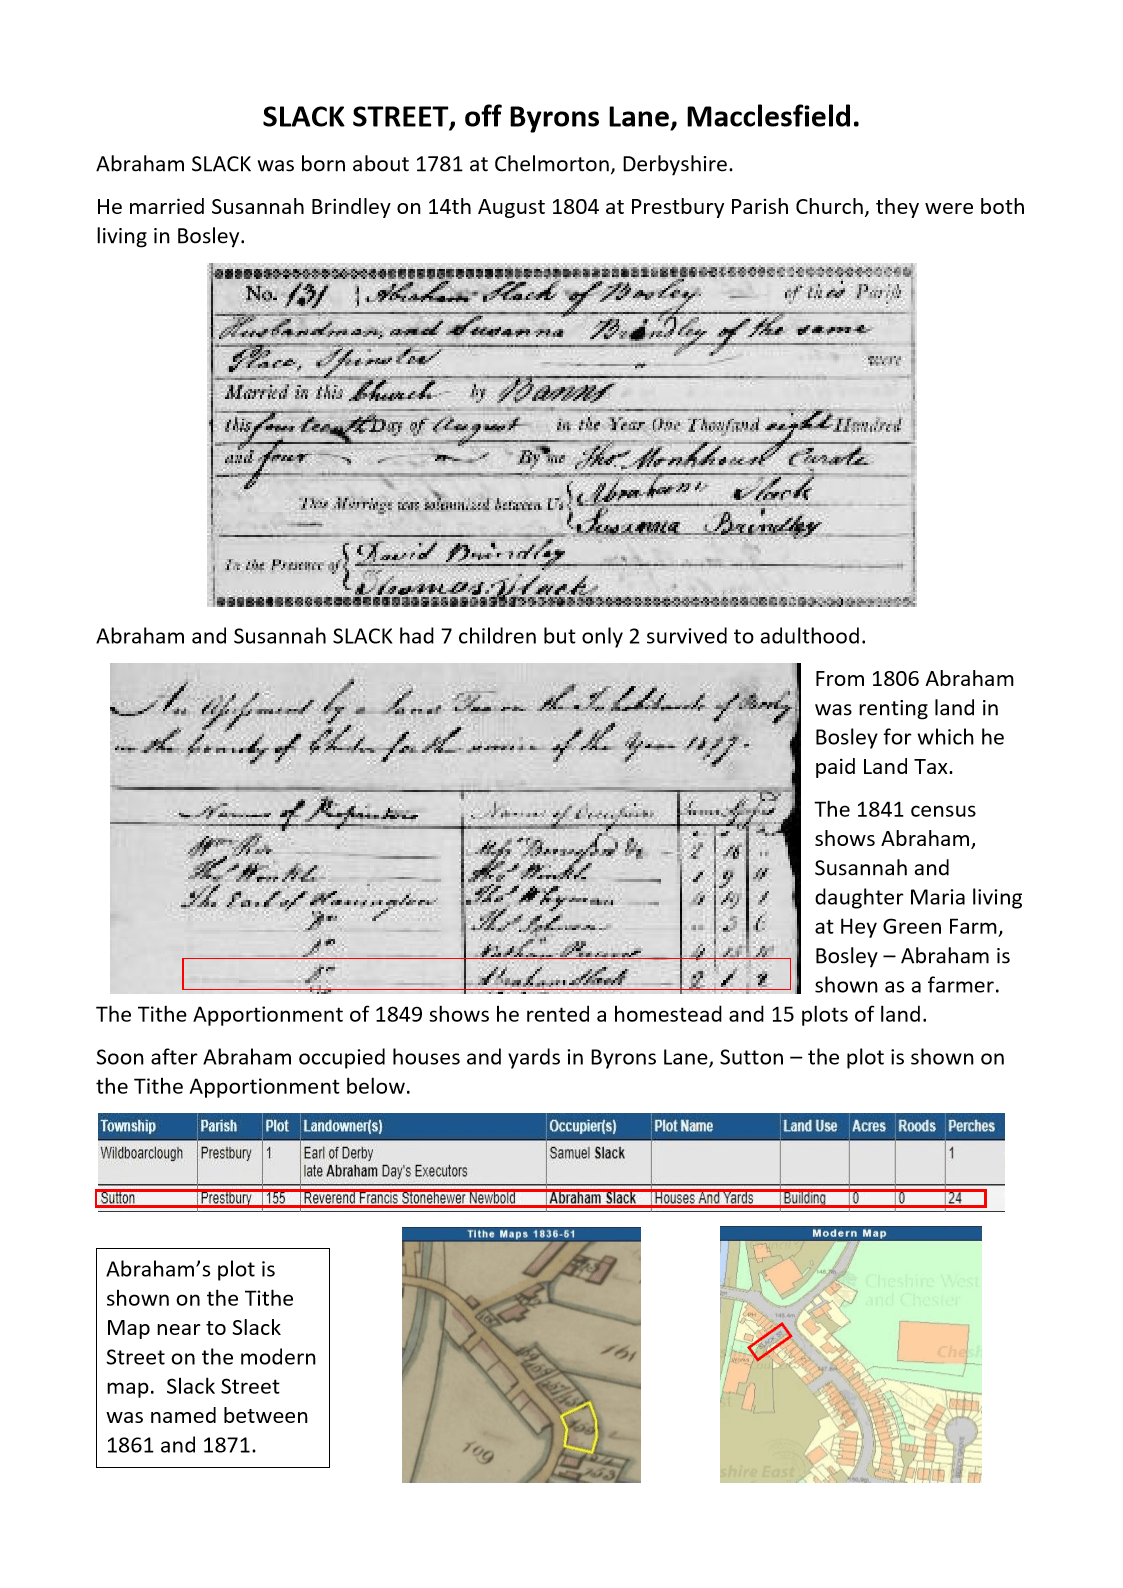 SLACK STREET, off Byrons Lane, Macclesfield.
Abraham SLACK was born about 1781 at Chelmorton, Derbyshire.
He married Susannah Brindley on 14th August 1804 at Prestbury Parish Church, they were both
living in Bosley.
No. 131 Abraham Slack of Bosley of this Parish
Husbandman, and Susanna Brindley of the same
Place, Spinster were
Married in this Church by Banns
this fourteenth Day of August in the Year One Thousand eight Hundred
and four By me Thos. Monkhouse Curate
This Marriage was solemnized between Us Abraham Slack
Susanna Brindley
In the Presence of David Brindley
Thomas Slack
Abraham and Susannah SLACK had 7 children but only 2 survived to adulthood.
An Assessment by a Land Tax on the Inhabitants of Bosley
in the County of Chester for the service of the Year
Names of Proprietors Names of Occupiers
The Earl of Harrington
Do
Do
Do Abraham Slack 2 1 2
From 1806 Abraham
was renting land in
Bosley for which he
paid Land Tax.
The 1841 census
shows Abraham,
Susannah and
daughter Maria living
at Hey Green Farm,
Bosley – Abraham is
shown as a farmer.
The Tithe Apportionment of 1849 shows he rented a homestead and 15 plots of land.
Soon after Abraham occupied houses and yards in Byrons Lane, Sutton – the plot is shown on
the Tithe Apportionment below.
Township Parish Plot Landowner(s) Occupier(s) Plot Name Land Use Acres Roods Perches
Wildboarclough Prestbury 1 Earl of Derby Samuel Slack 1
late Abraham Day's Executors
Sutton Prestbury 155 Reverend Francis Stonehewer Newbold Abraham Slack Houses And Yards Building 0 0 24
Abraham's plot is
shown on the Tithe
Map near to Slack
Street on the modern
map. Slack Street
was named between
1861 and 1871.
Tithe Maps 1836-51
161
109
155
153
Modern Map
Cheshire West
and Chester
SLACK ST
Ches
shire East